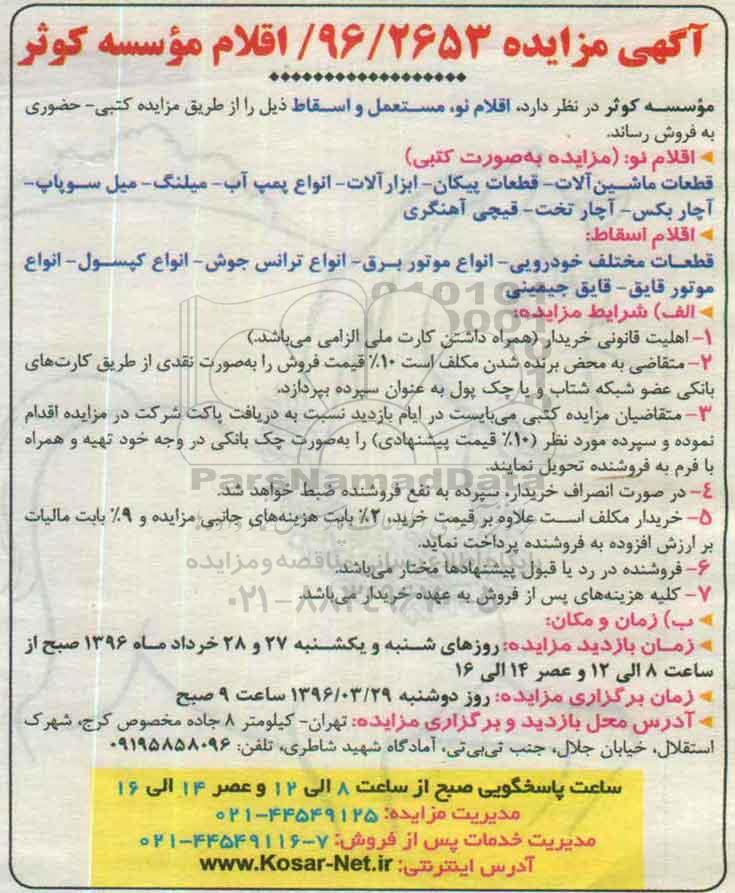 آگهی مزایده ۹۶/۲۶۵۳/ اقلام مؤسسه کوثر
مؤسسه کوثر در نظر دارد، اقلام نو، مستعمل و اسقاط ذیل را از طریق مزایده کتبی- حضوری
به فروش رساند.
اقلام نو: (مزایده به‌صورت کتبی)
قطعات ماشین‌آلات- قطعات پیکان- ابزارآلات- انواع پمپ آب- میلنگ- میل سوپاپ-
آچار بکس- آچار تخت- قیچی آهنگری
اقلام اسقاط:
قطعات مختلف خودرویی- انواع موتور برق- انواع ترانس جوش- انواع کپسول- انواع
موتور قایق- قایق جیمینی
الف) شرایط مزایده:
۱- اهلیت قانونی خریدار (همراه داشتن کارت ملی الزامی می‌باشد.)
۲- متقاضی به محض برنده شدن مکلف است ۱۰٪ قیمت فروش را به‌صورت نقدی از طریق کارت‌های
بانکی عضو شبکه شتاب و یا چک پول به عنوان سپرده بپردازد.
۳- متقاضیان مزایده کتبی می‌بایست در ایام بازدید نسبت به دریافت پاکت شرکت در مزایده اقدام
نموده و سپرده مورد نظر (۱۰٪ قیمت پیشنهادی) را به‌صورت چک بانکی در وجه خود تهیه و همراه
با فرم به فروشنده تحویل نمایند.
ParsNamadData
۴- در صورت انصراف خریدار، سپرده به نفع فروشنده ضبط خواهد شد.
۵- خریدار مکلف است علاوه بر قیمت خرید، ۲٪ بابت هزینه‌های جانبی مزایده و ۹٪ بابت مالیات
بر ارزش افزوده به فروشنده پرداخت نماید.
۶- فروشنده در رد یا قبول پیشنهادها مختار می‌باشد.
۷- کلیه هزینه‌های پس از فروش به عهده خریدار می‌باشد.
ب) زمان و مکان:
زمان بازدید مزایده: روزهای شنبه و یکشنبه ۲۷ و ۲۸ خرداد ماه ۱۳۹۶ صبح از
ساعت ۸ الی ۱۲ و عصر ۱۴ الی ۱۶
زمان برگزاری مزایده: روز دوشنبه ۱۳۹۶/۰۳/۲۹ ساعت ۹ صبح
آدرس محل بازدید و برگزاری مزایده: تهران- کیلومتر ۸ جاده مخصوص کرج، شهرک
استقلال، خیابان جلال، جنب تی‌بی‌تی، آمادگاه شهید شاطری، تلفن: ۰۹۱۹۵۸۵۸۰۹۶
ساعت پاسخگویی صبح از ساعت ۸ الی ۱۲ و عصر ۱۴ الی ۱۶
مدیریت مزایده: ۰۲۱-۴۴۵۴۹۱۲۵
مدیریت خدمات پس از فروش: ۰۲۱-۴۴۵۴۹۱۱۶-۷
آدرس اینترنتی: www.Kosar-Net.ir